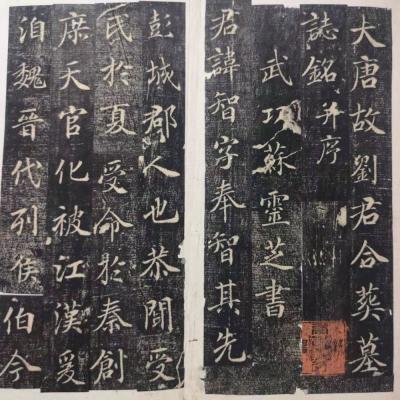 大唐故劉君合葬墓
誌銘并序
武功蘇靈芝書
君諱智字奉智其先
彭城郡人也恭聞受
民於夏受命於秦創
庶天官化被江漢爰
洎魏晉代列侯伯今